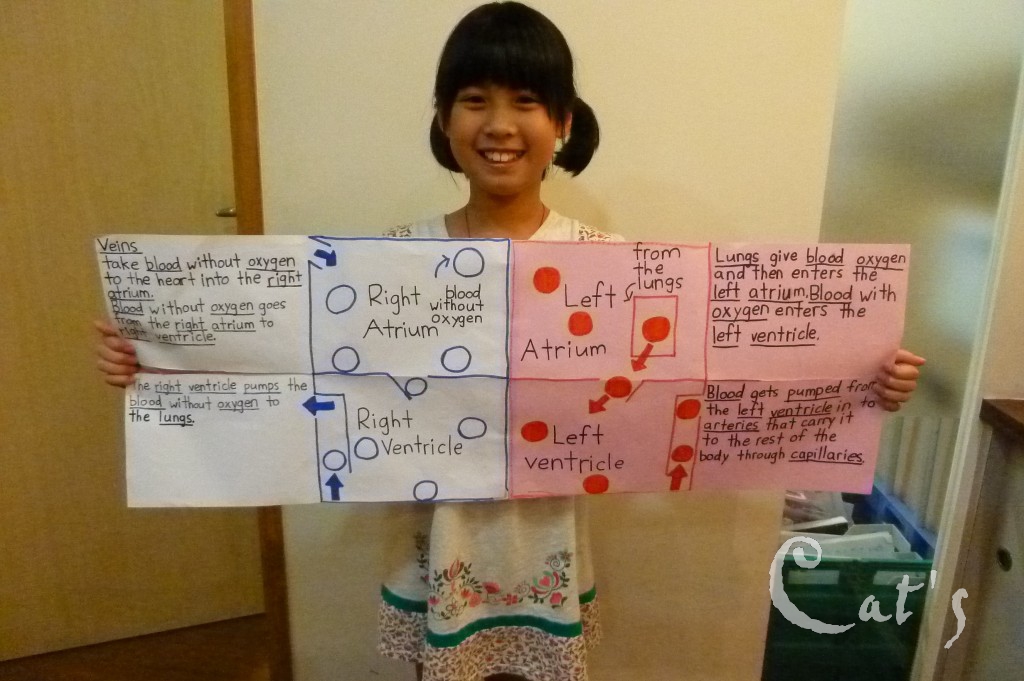 Veins
take blood without oxygen
to the heart into the right
atrium.
Blood without oxygen goes
from the right atrium to
right ventricle.
The right ventricle pumps the
blood without oxygen to
the lungs.
Right
Atrium
blood
without
oxygen
Right
Ventricle
from
the
lungs
Left
Atrium
Left
ventricle
Lungs give blood oxygen
and then enters the
left atrium. Blood with
oxygen enters the
left ventricle.
Blood gets pumped from
the left ventricle in to
arteries that carry it
to the rest of the
body through capillaries.
Cat's